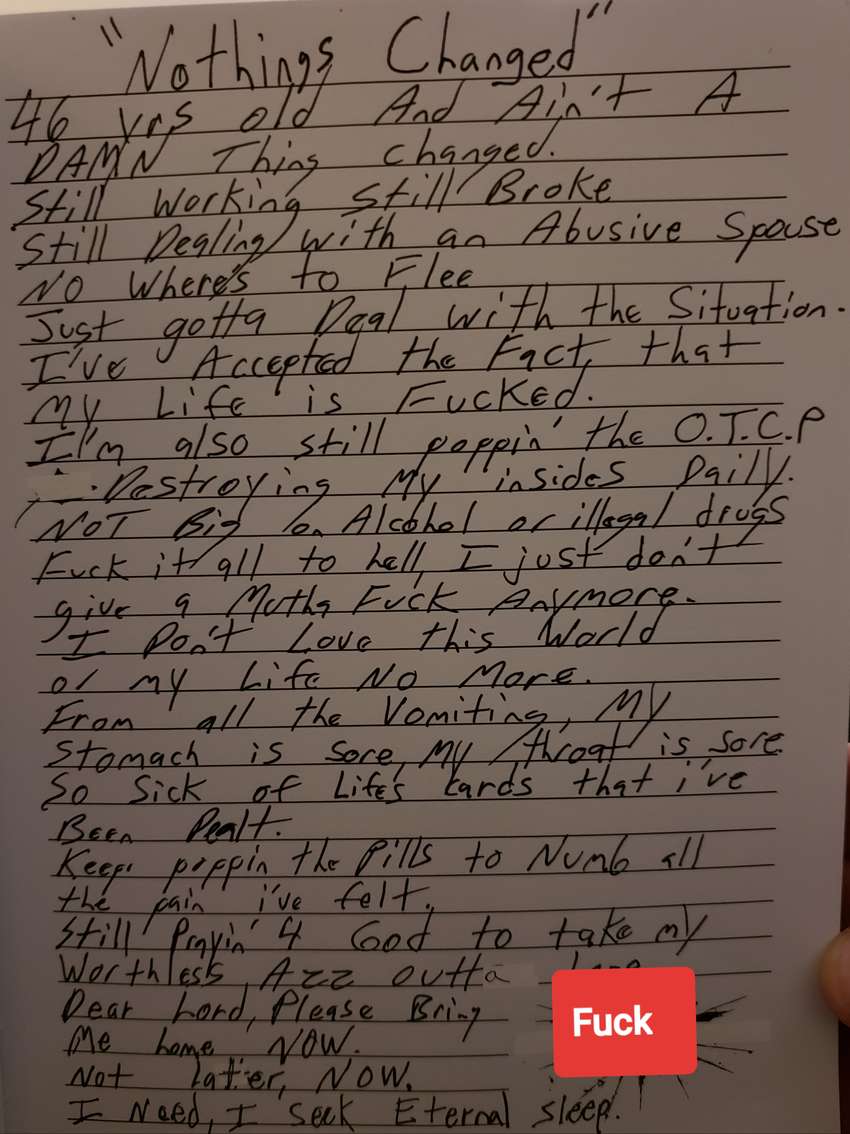 "Nothings Changed"
46 yrs old And Ain't A
DAMN Thing changed.
Still Working Still Broke
Still Dealing with an Abusive Spouse
NO Where's to Flee
Just gotta Deal with the Situation.
I've Accepted the Fact, that
my Life is Fucked.
I'm also still poppin' the O.T.C.P
Destroying My insides Daily.
NOT Big on Alcohol or illegal drugs
Fuck it all to hell, I just don't
give a Mutha Fuck Anymore.
I Don't Love this World
or my Life No More.
From all the Vomiting, My
Stomach is sore, My throat is sore
So Sick of Life's Cards that i've
Been Dealt.
Keep poppin the Pills to Numb all
the pain i've felt.
Still Prayin' 4 God to take my
Worthless Azz outta
Dear Lord, Please Bring
Me home NOW.
Not later, NOW.
I Need, I Seek Eternal sleep.
Fuck